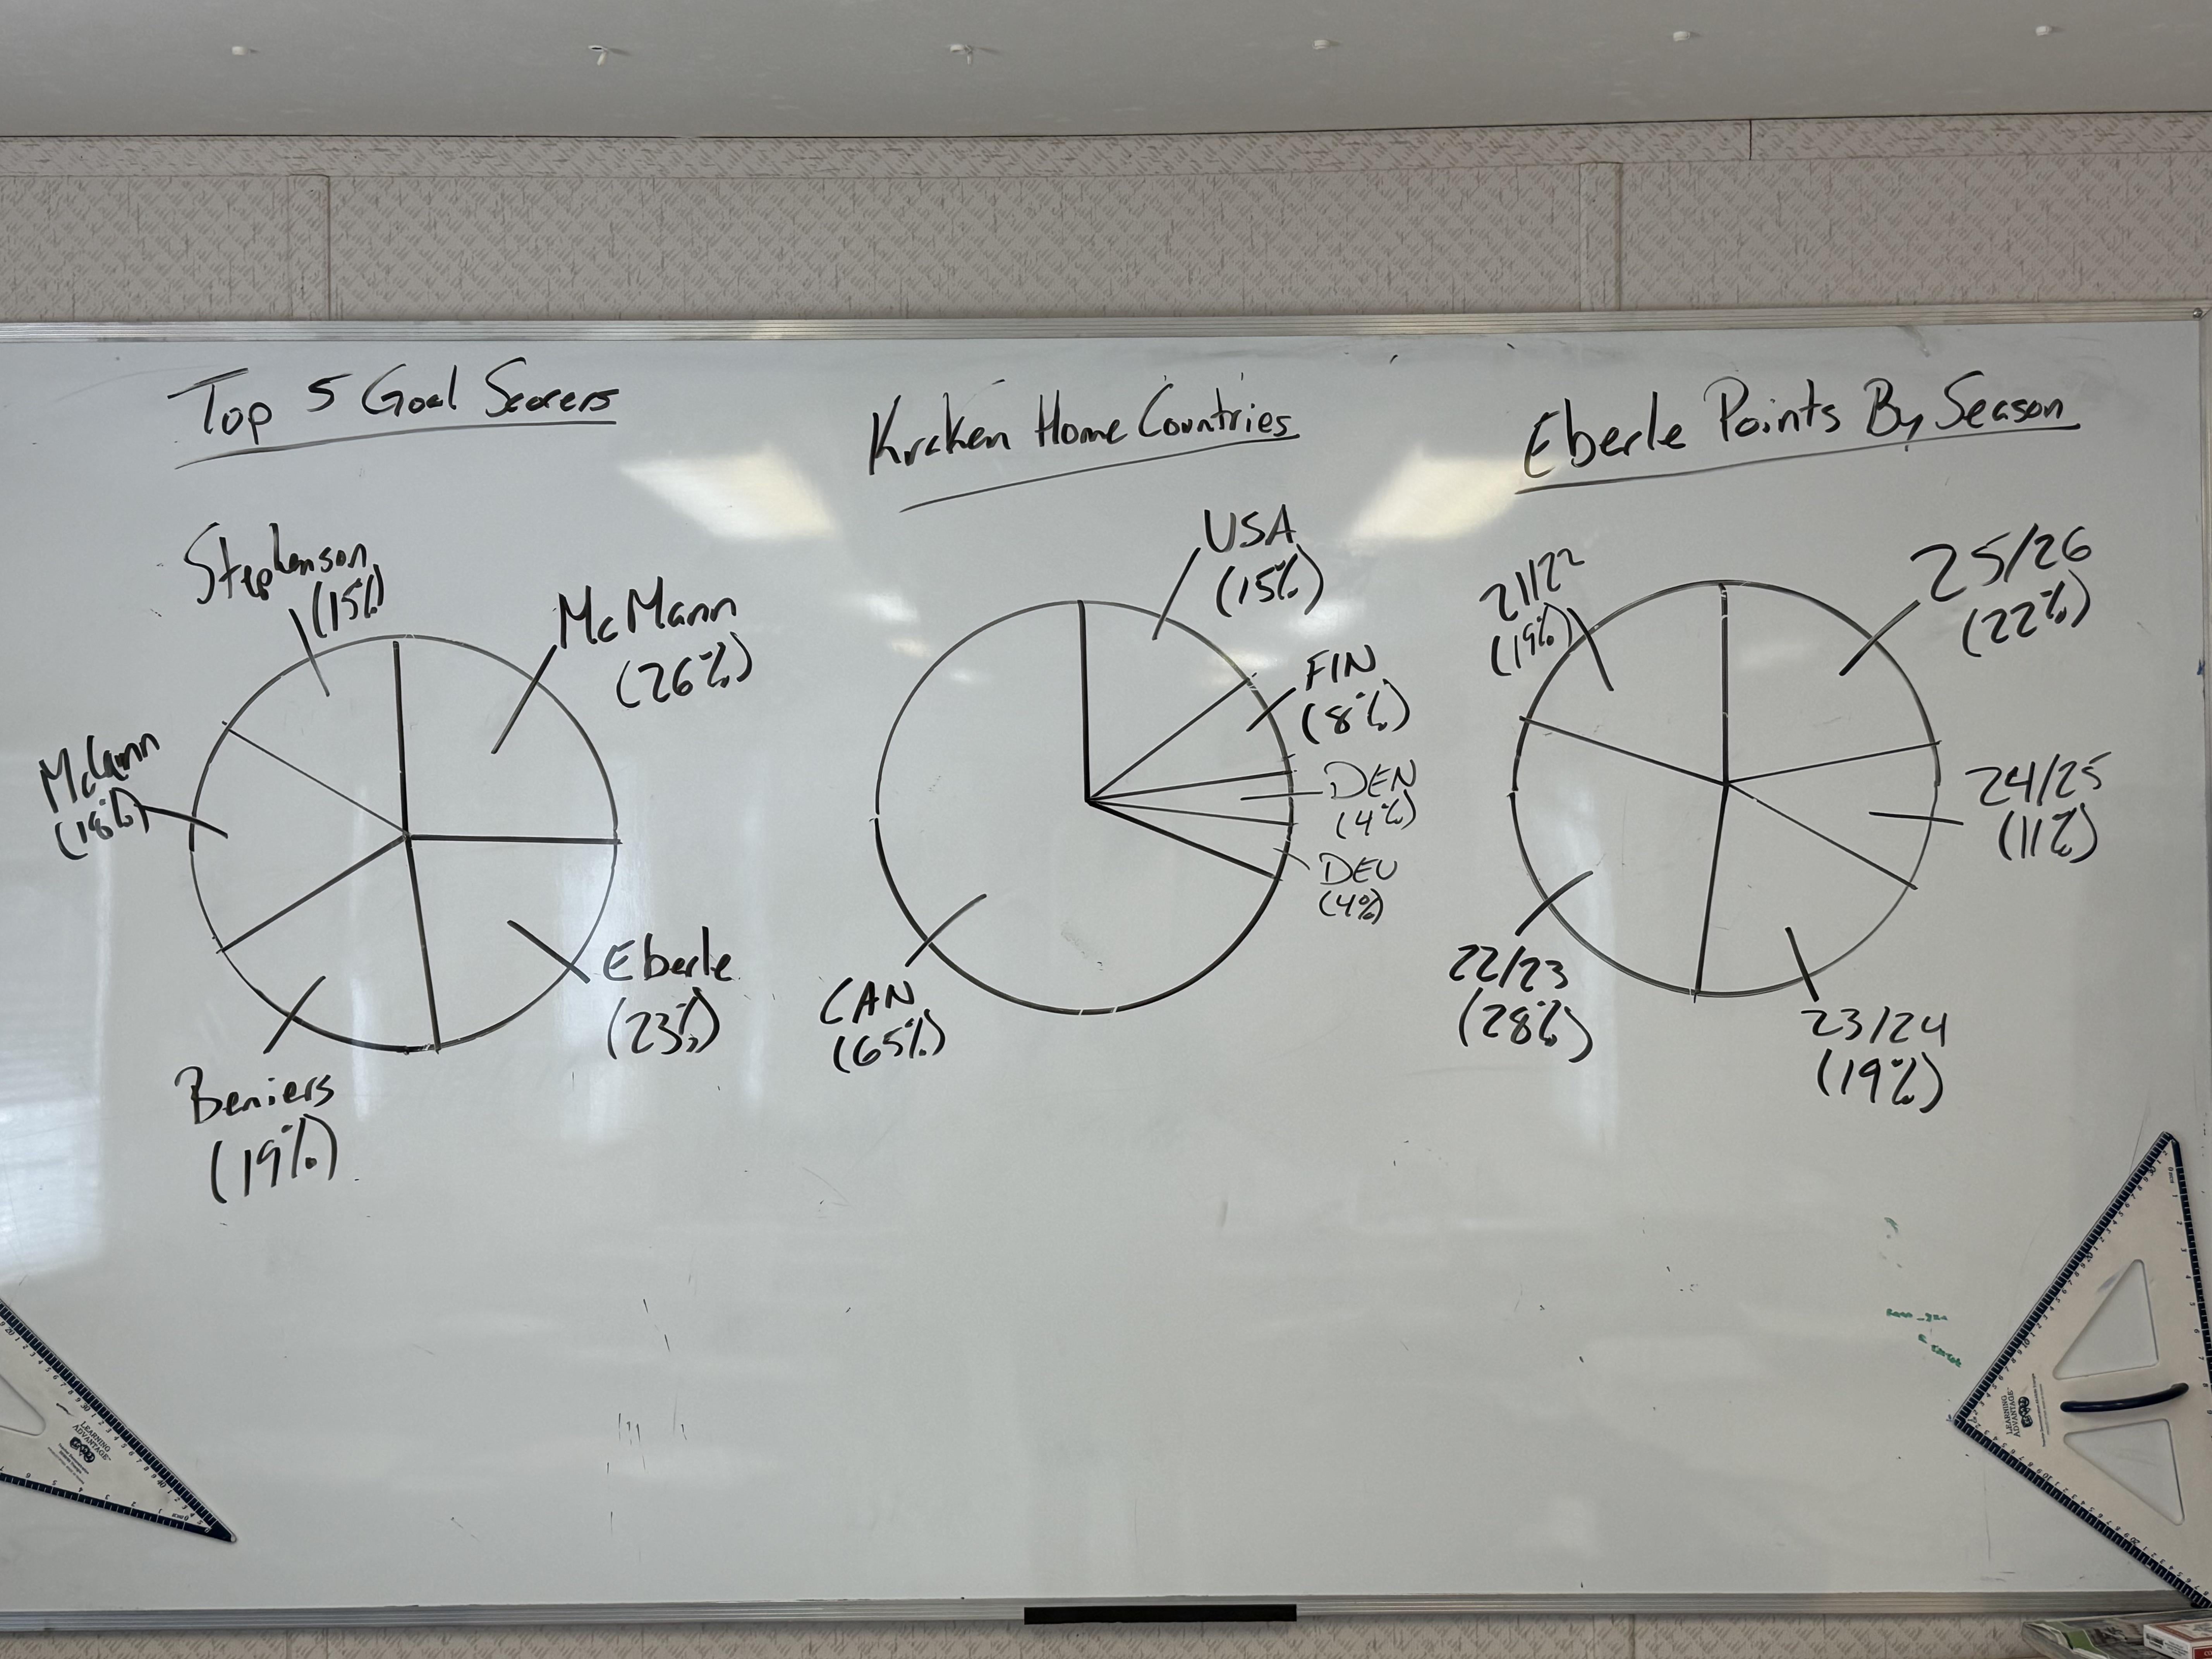 Top 5 Goal Scorers
Stephenson
(15%)
McMann
(26%)
McCann
(18%)
Eberle
(23%)
Beniers
(19%)
Kraken Home Countries
USA
(15%)
FIN
(8%)
DEN
(4%)
DEU
(4%)
CAN
(65%)
Eberle Points By Season
21/22
(19%)
25/26
(22%)
24/25
(11%)
22/23
(28%)
23/24
(19%)
LEARNING
ADVANTAGE
LEARNING
ADVANTAGE